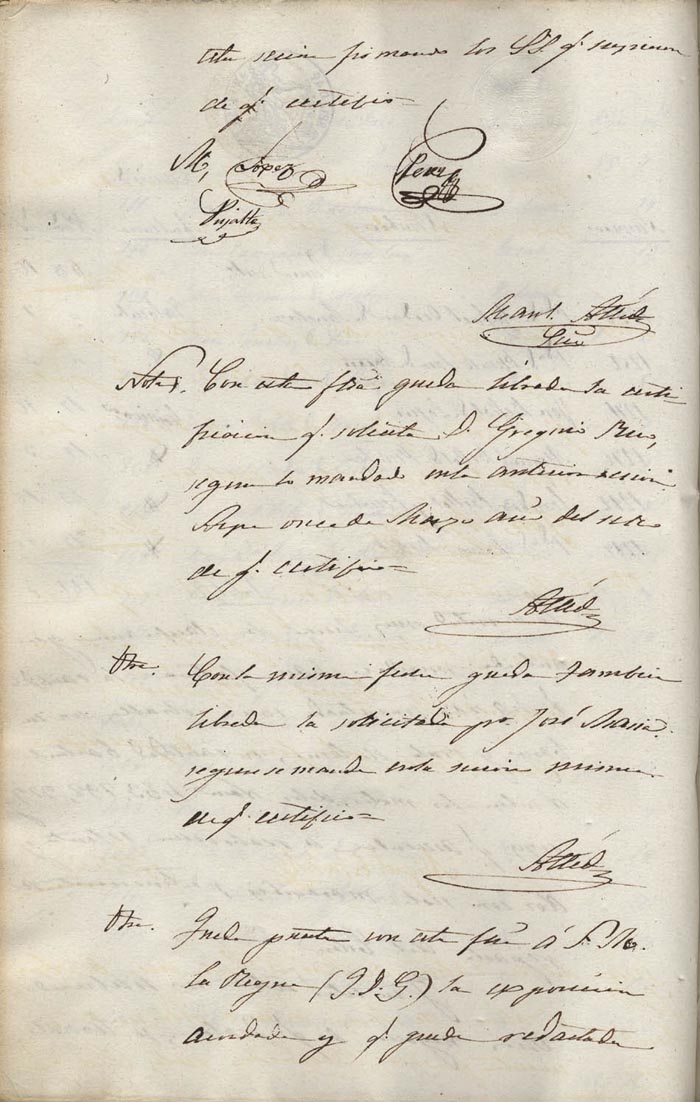 esta sesion firmando los SS. q.e suscriben
de q.e certifico =
M, Lopez Perez
Pujalte
Man.l
Srio
Nota. Con esta fha queda librada la certi-
ficacion q.e solicita D. Gregorio Rico,
segun lo mandado en la anterior sesion.
Aspe once de Marzo año del sello
de q.e certifico =
Otra. Con la misma fecha queda tambien
librada la solicitada por José Maria.
segun se manda en la sesion misma
de q.e certifico =
Otra. Queda puesta con esta fha á S. M.
la Reyna (Q. D. G.) la exposicion
acordada y q.e queda redactada